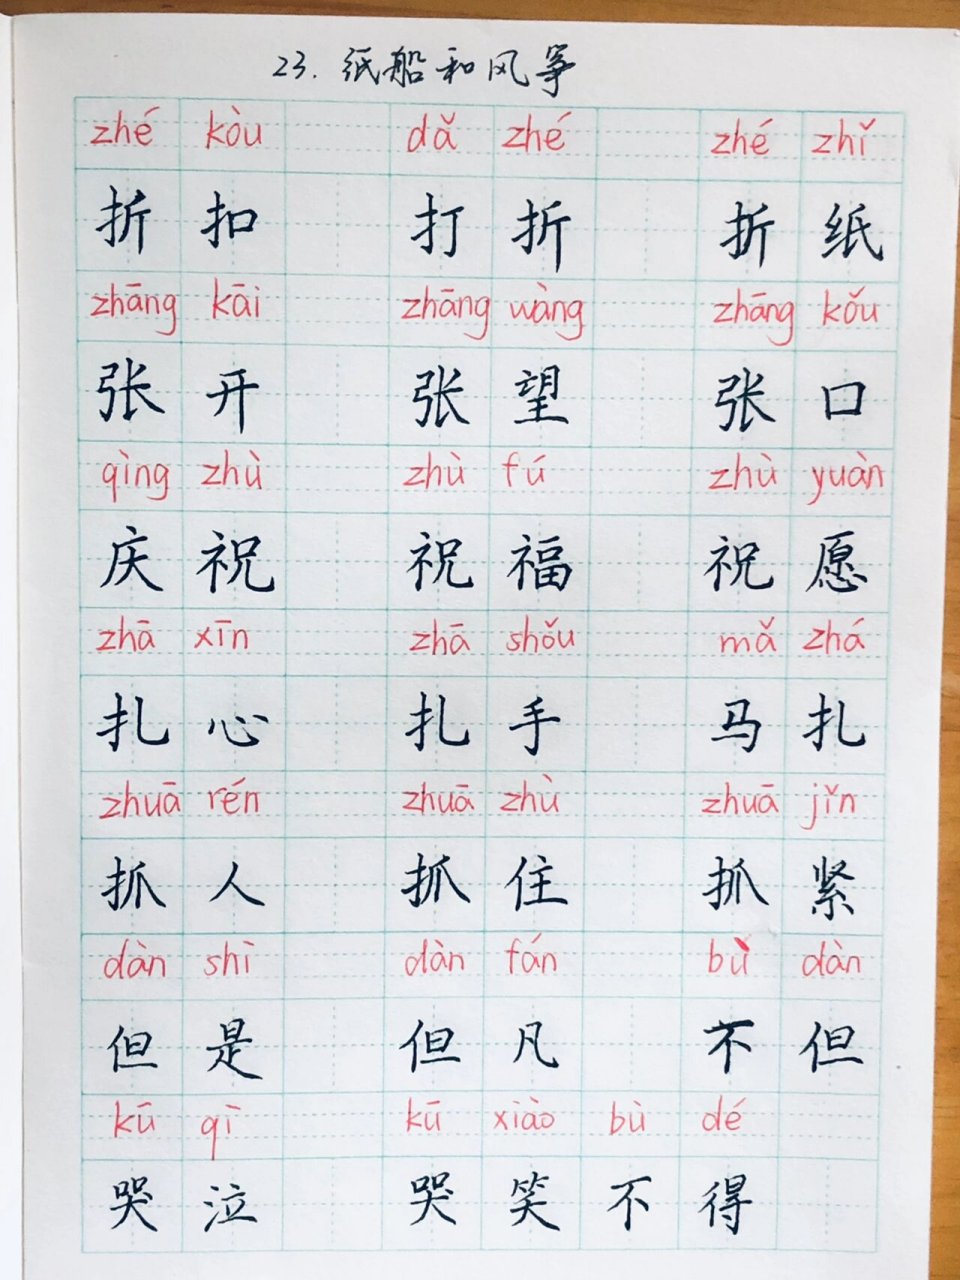 23. 纸船和风筝
zhé kòu dǎ zhé zhé zhǐ
折扣 打折 折纸
zhāng kāi zhāng wàng zhāng kǒu
张开 张望 张口
qìng zhù zhù fú zhù yuàn
庆祝 祝福 祝愿
zhā xīn zhā shǒu mǎ zhá
扎心 扎手 马扎
zhuā rén zhuā zhù zhuā jǐn
抓人 抓住 抓紧
dàn shì dàn fán bù dàn
但是 但凡 不但
kū qì kū xiào bù dé
哭泣 哭笑不得